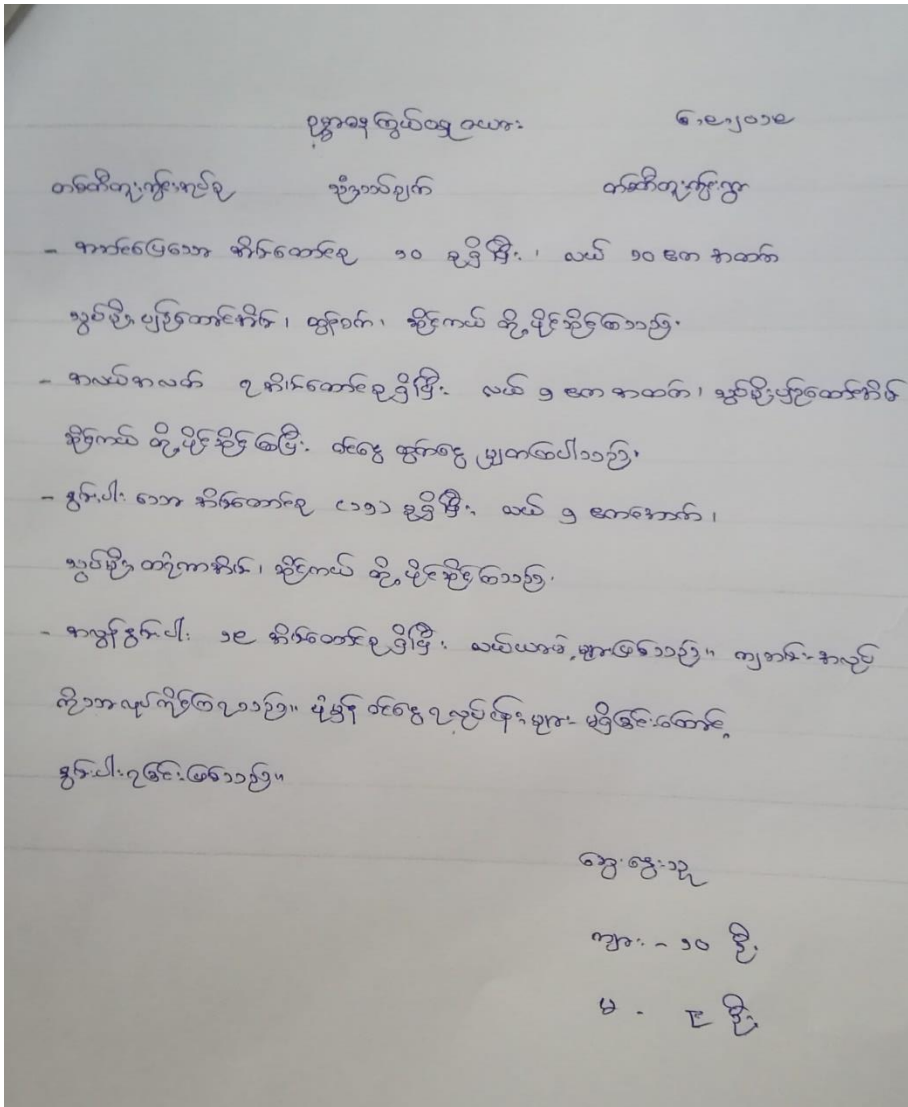 ဥစ္စာဓနကြွယ်ဝမှု ဇယား ၆၊၈၊၂၀၁၈
တစ်ဆီတူးကွင်းအုပ်စု သုံးသပ်ချက် တစ်ဆီတူးကွင်းရွာ
- အဆင်ပြေသော အိမ်ထောင်စု ၁၀ စုရှိပြီး၊ လယ် ၁၀ ဧက အထက်
သွပ်မိုး ပျဉ်ထောင်အိမ်၊ ထွန်စက်၊ ဆိုင်ကယ် တို့ ပိုင်ဆိုင်ကြသည်။
- အလယ်အလတ် ၇ အိမ်ထောင်စုရှိပြီး လယ် ၅ ဧက အထက်၊ သွပ်မိုးပျဉ်ထောင်အိမ်
ဆိုင်ကယ် တို့ ပိုင်ဆိုင်ကြပြီး ဝင်ငွေ ထွက်ငွေ မျှတကြပါသည်။
- နွမ်းပါး သော အိမ်ထောင်စု (၁၅) စုရှိပြီး လယ် ၅ ဧကအောက်၊
သွပ်မိုး ထရံကာအိမ်၊ ဆိုင်ကယ် တို့ ပိုင်ဆိုင်ကြသည်။
- အလွန်နွမ်းပါး ၁၉ အိမ်ထောင်စုရှိပြီး လယ်ယာမဲ့များဖြစ်သည်။ ကျဘမ်းအလုပ်
ကိုသာလုပ်ကိုင်ကြရသည်။ ပုံမှန် ဝင်ငွေရလုပ်ငန်းများ မရှိခြင်းကြောင့်
နွမ်းပါးရခြင်းဖြစ်သည်။
ဆွေးနွေးသူ
ကျား - ၁၀ ဦး
မ - ၉ ဦး